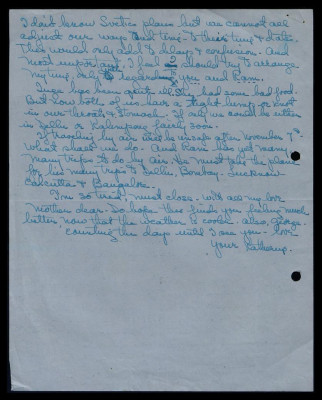 I don't know Sveti's plans but we cannot all
adjust our ways and time to their time & dates.
This would only add to delays & confusion. And
most important, I feel I should try to arrange
my time, only to regard to you and Ram.
has been quite ill. She had some bad food.
But now both of us have a tight lump or knot
in our throats & stomach. If only we could be either
in Delhi or Kalimpong fairly soon.
If traveling by air will be unsafe after November 7th
what shall we do. And Ram has yet many
many trips to do by air. He must take the plane
for his many trips to Delhi, Bombay, Lucknow
Calcutta & Bangalore.
I'm so tired, must close - with all my love
mother dear. Do hope this finds you feeling much
better now that the weather is cooler. also George.
counting the days until I see you - love
Your Katherine.